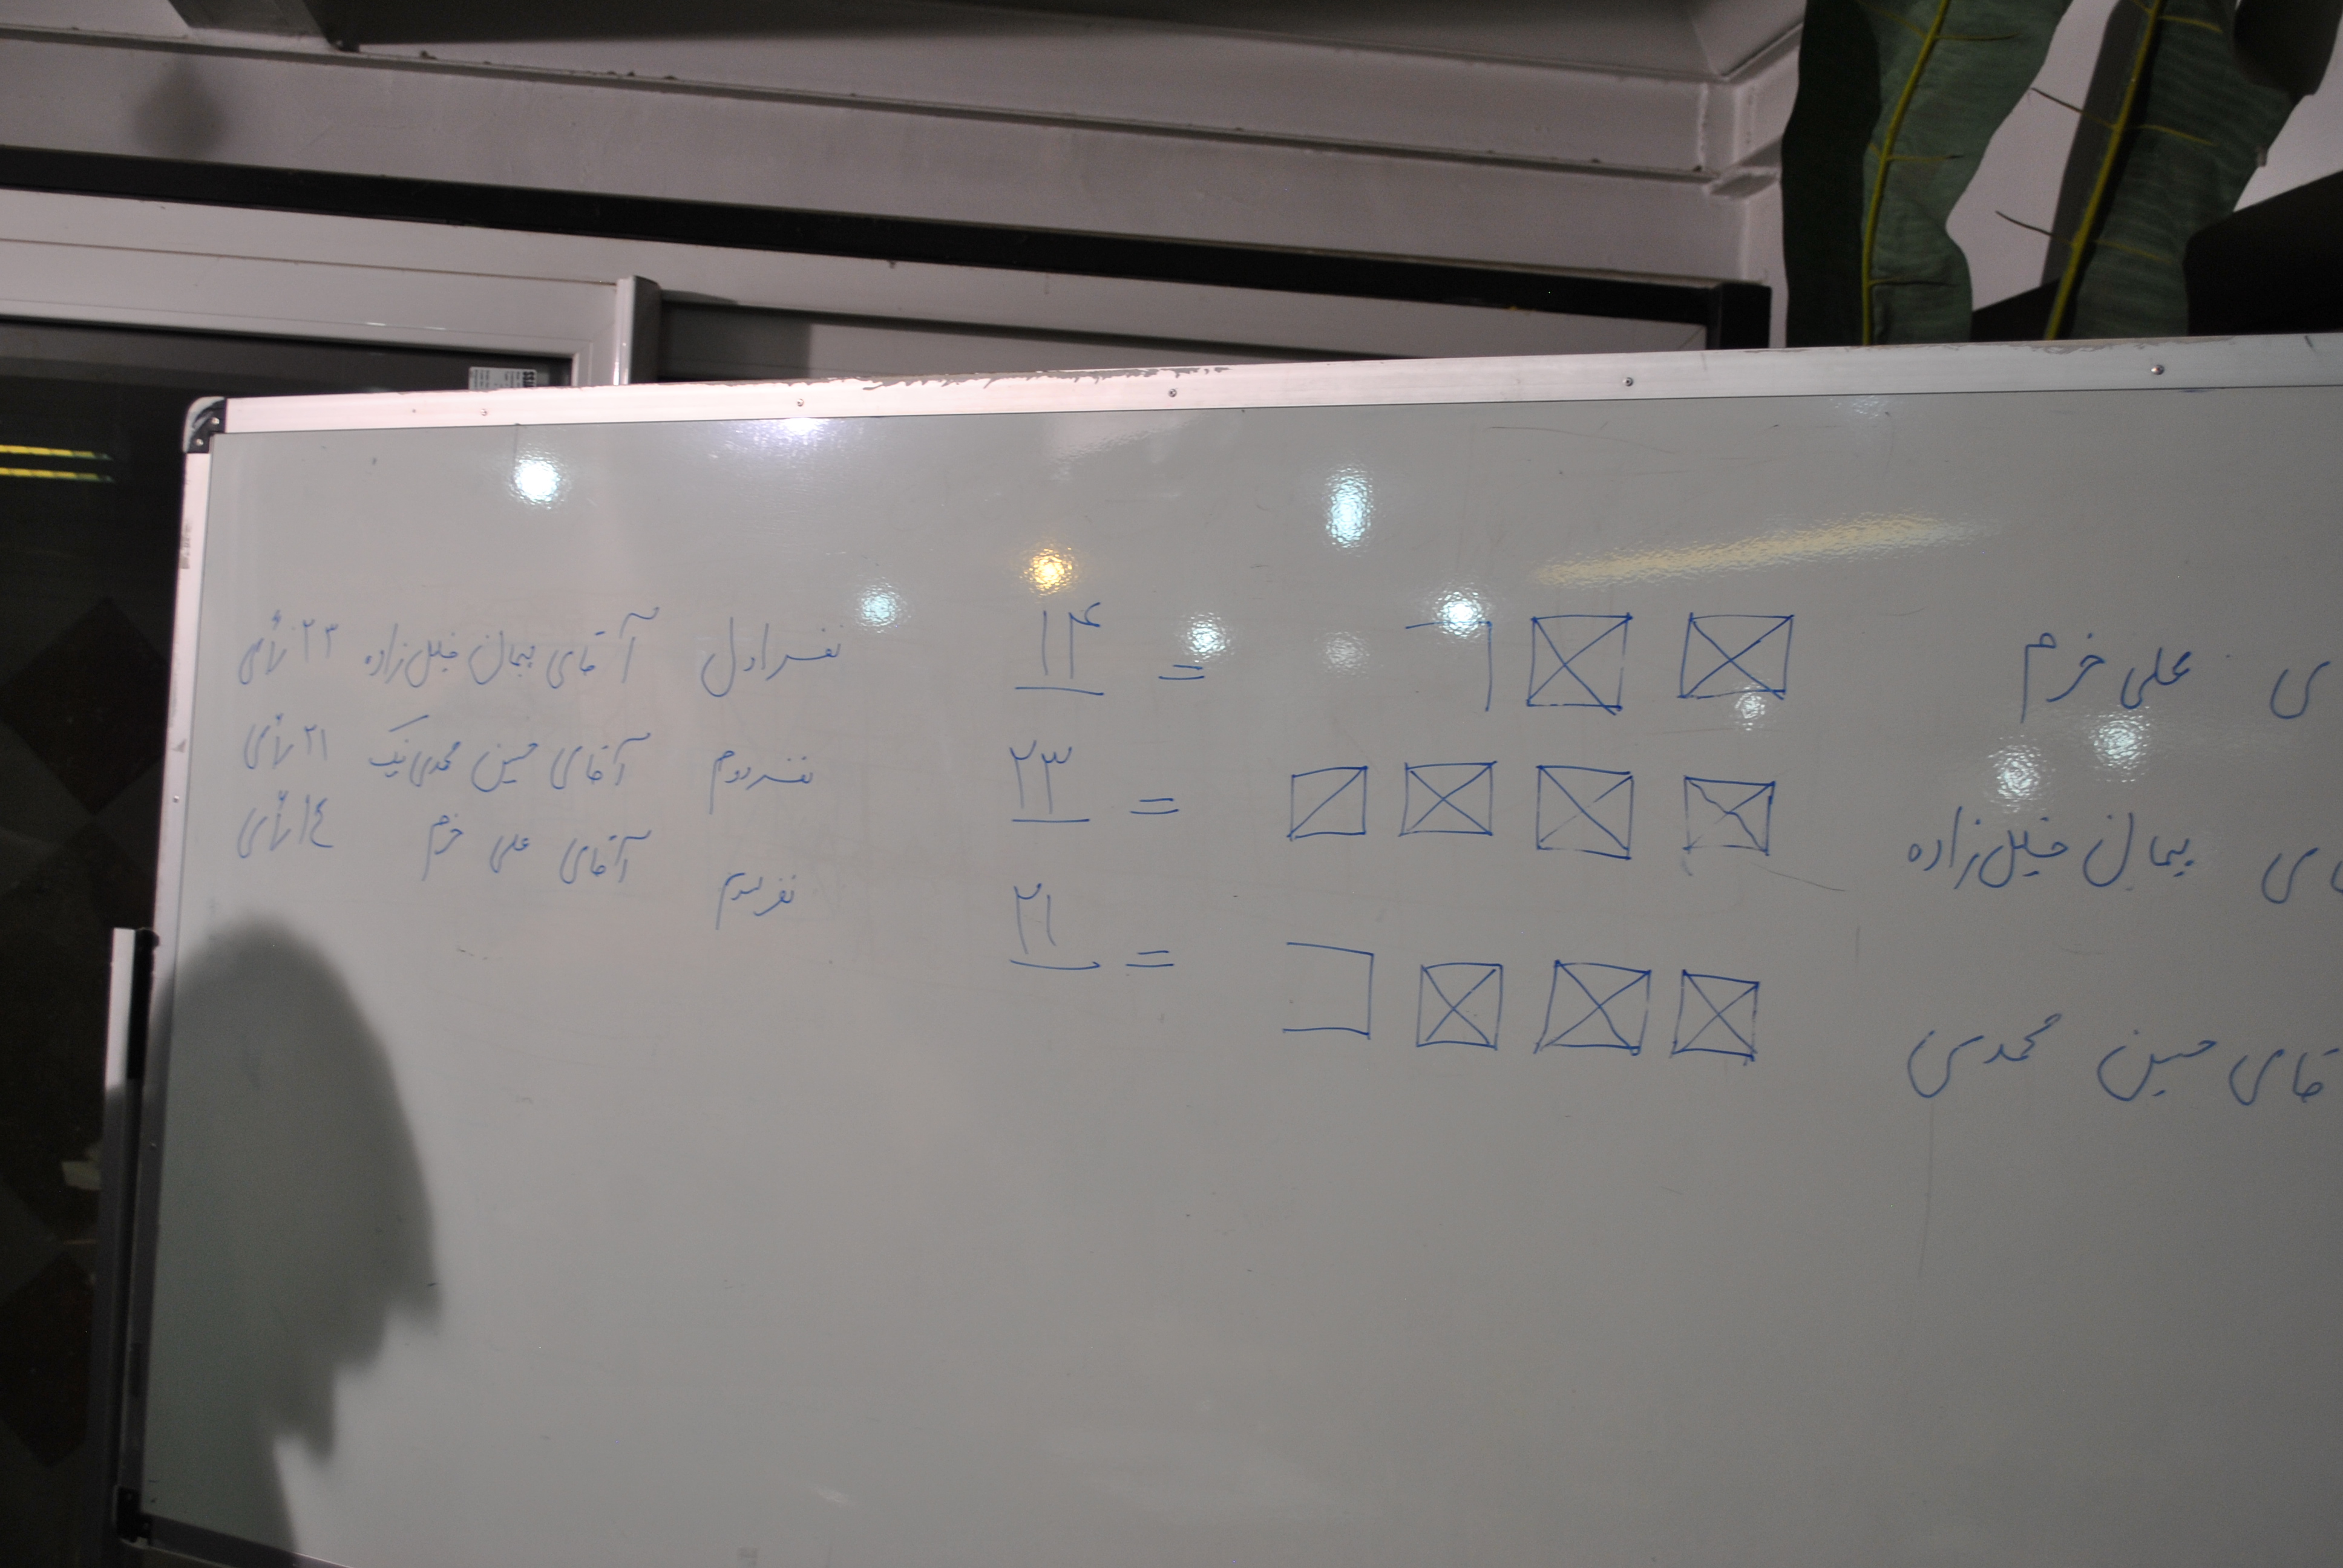 ی علی خرم = ۱۴
ی پیمان خلیل‌زاده = ۲۳
قای حسین محمدی = ۲۱
نفر اول آقای پیمان خلیل‌زاده ۲۳ رأی
نفر دوم آقای حسین محمدی نیک ۲۱ رأی
نفر سوم آقای علی خرم ۱٤ رأی